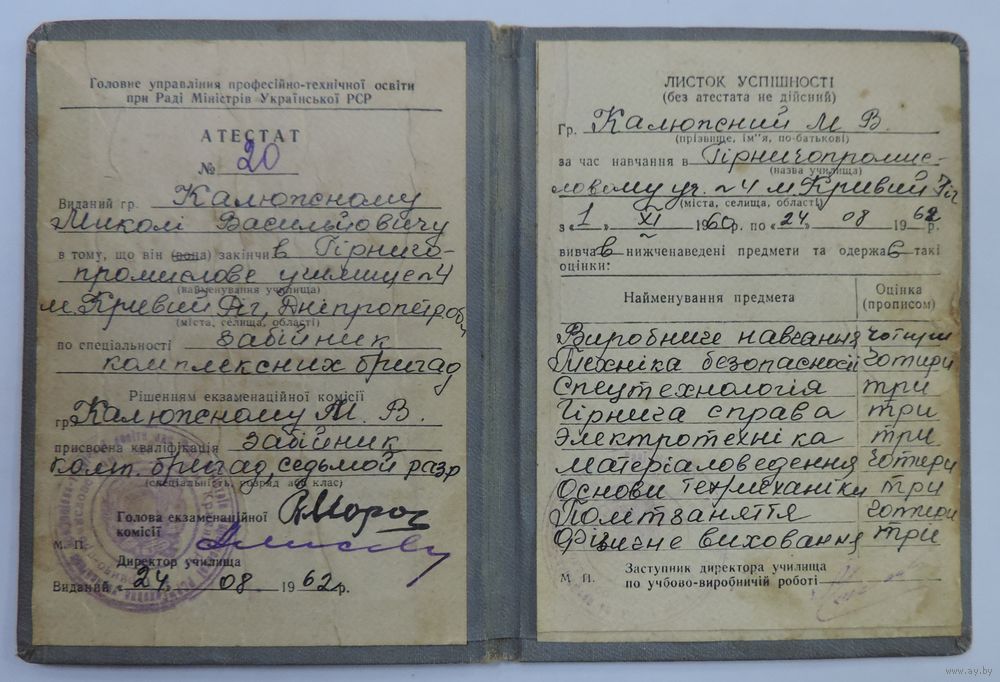 Головне управління професійно-технічної освіти
при Раді Міністрів Української РСР
АТЕСТАТ
№ 20
Виданий гр. Калюжному
Миколі Васильовичу
в тому, що він (вона) закінчив Гірничо-
промислове училище №4
(найменування училища)
м. Кривий Ріг, Дніпропетр. обл
(міста, селища, області)
по спеціальності забійник
комплексних бригад
Рішенням екзаменаційної комісії
гр. Калюжному М. В.
присвоєна кваліфікація забійник
компл. бригад, седьмой разр
(спеціальність, розряд або клас)
Голова екзаменаційної
комісії
М. П.
Директор училища
Виданий «24 08 1962р.
ЛИСТОК УСПІШНОСТІ
(без атестата не дійсний)
Гр. Калюжний М. В.
(прізвище, ім"я, по-батькові)
за час навчання в Гірничопромис-
(назва училища)
ловому уч. №4 м. Кривий Ріг
(міста, селища, області)
з «1» XI 1960р. по «24» 08 1962р.
вивчав нижченаведені предмети та одержав такі
оцінки:
Найменування предмета Оцінка
(прописом)
Виробниче навчання чотири
Техніка безопасності чотири
Спецтехнологія три
Гірнича справа три
Электротехніка три
Матеріаловедення чотири
Основи техмеханіки три
Політзаняття чотири
Фізичне виховання три
Заступник директора училища
М. П. по учбово-виробничій роботі
www.ay.by